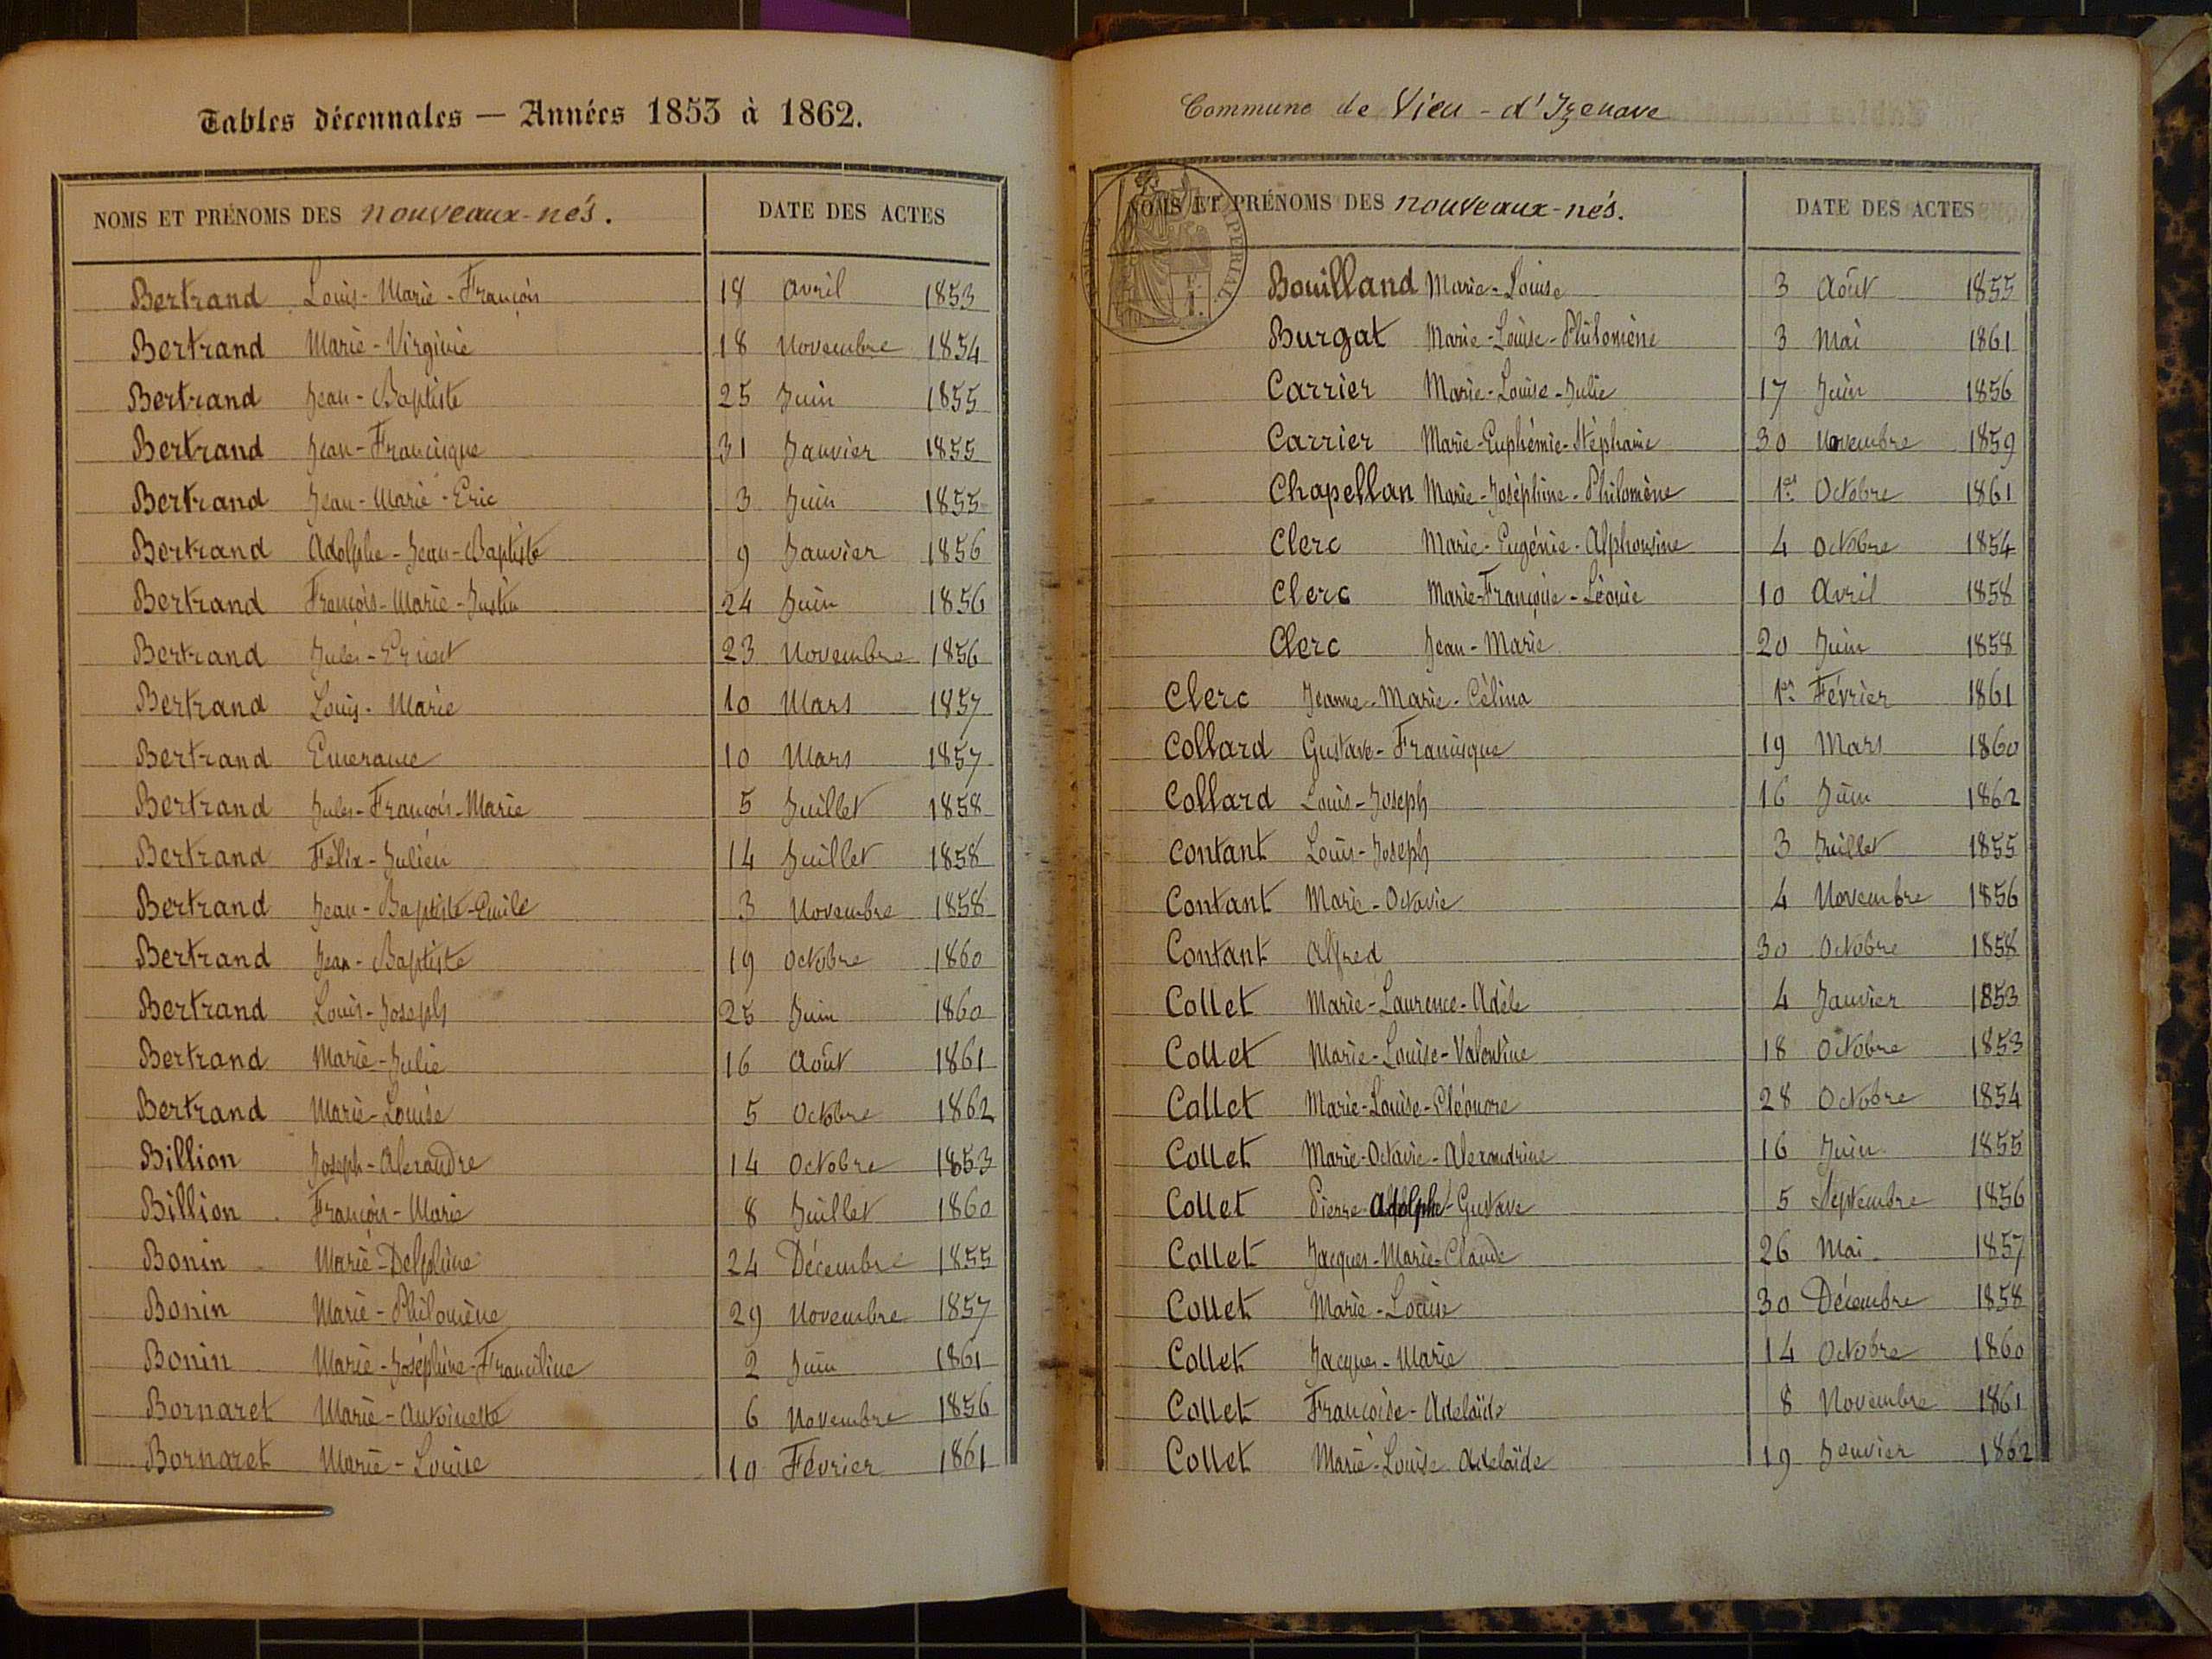 Tables décennales — Années 1853 à 1862.
NOMS ET PRÉNOMS DES nouveaux-nés. DATE DES ACTES
Bertrand Louis-Marie-François 18 avril 1853
Bertrand Marie-Virginie 18 Novembre 1854
Bertrand Jean-Baptiste 25 Juin 1855
Bertrand Jean-Francisque 31 Janvier 1855
Bertrand Jean-Marie-Eric 3 Juin 1855
Bertrand Adolphe-Jean-Baptiste 9 Janvier 1856
Bertrand François-Marie-Justin 24 Juin 1856
Bertrand Jules-Ernest 23 Novembre 1856
Bertrand Louis-Marie 10 Mars 1857
Bertrand Emerance 10 Mars 1857
Bertrand Jules-François-Marie 5 Juillet 1858
Bertrand Félix-Julien 14 Juillet 1858
Bertrand Jean-Baptiste-Emile 3 Novembre 1858
Bertrand Jean-Baptiste 19 octobre 1860
Bertrand Louis-Joseph 25 Juin 1860
Bertrand Marie-Julie 16 Août 1861
Bertrand Marie-Louise 5 Octobre 1862
Billion Joseph-Alexandre 14 Octobre 1853
Billion François-Marie 8 Juillet 1860
Bonin Marie-Delphine 24 Décembre 1855
Bonin Marie-Philomène 29 Novembre 1857
Bonin Marie-Joséphine-Franciline 2 Juin 1861
Bornaret Marie-Antoinette 6 Novembre 1856
Bornaret Marie-Louise 10 Février 1861
Commune de Vieu-d'Izenave
NOMS ET PRÉNOMS DES nouveaux-nés. DATE DES ACTES
Bouilland Marie-Louise 3 Août 1855
Burgat Marie-Louise-Philomène 3 Mai 1861
Carrier Marie-Louise-Julie 17 Juin 1856
Carrier Marie-Euphémie-Stéphanie 30 Novembre 1859
Chapellan Marie-Joséphine-Philomène 1er Octobre 1861
Clerc Marie-Eugénie-Alphonsine 4 octobre 1854
Clerc Marie-Françoise-Léonie 10 Avril 1858
Clerc Jean-Marie 20 Juin 1858
Clerc Jeanne-Marie-Célina 1er Février 1861
Collard Gustave-Francisque 19 Mars 1860
Collard Louis-Joseph 16 Juin 1862
Contant Louis-Joseph 3 Juillet 1855
Contant Marie-Octavie 4 Novembre 1856
Contant Alfred 30 Octobre 1858
Collet Marie-Laurence-Adèle 4 Janvier 1853
Collet Marie-Louise-Valentine 18 Octobre 1853
Collet Marie-Louise-Eléonore 28 Octobre 1854
Collet Marie-Octavie-Alexandrine 16 Juin 1855
Collet Pierre-Adolphe-Gustave 5 Septembre 1856
Collet Jacques-Marie-Claude 26 Mai 1857
Collet Marie-Louise 30 Décembre 1858
Collet Jacques-Marie 14 Octobre 1860
Collet Françoise-Adélaïde 8 Novembre 1861
Collet Marie-Louise Adélaïde 19 Janvier 1862